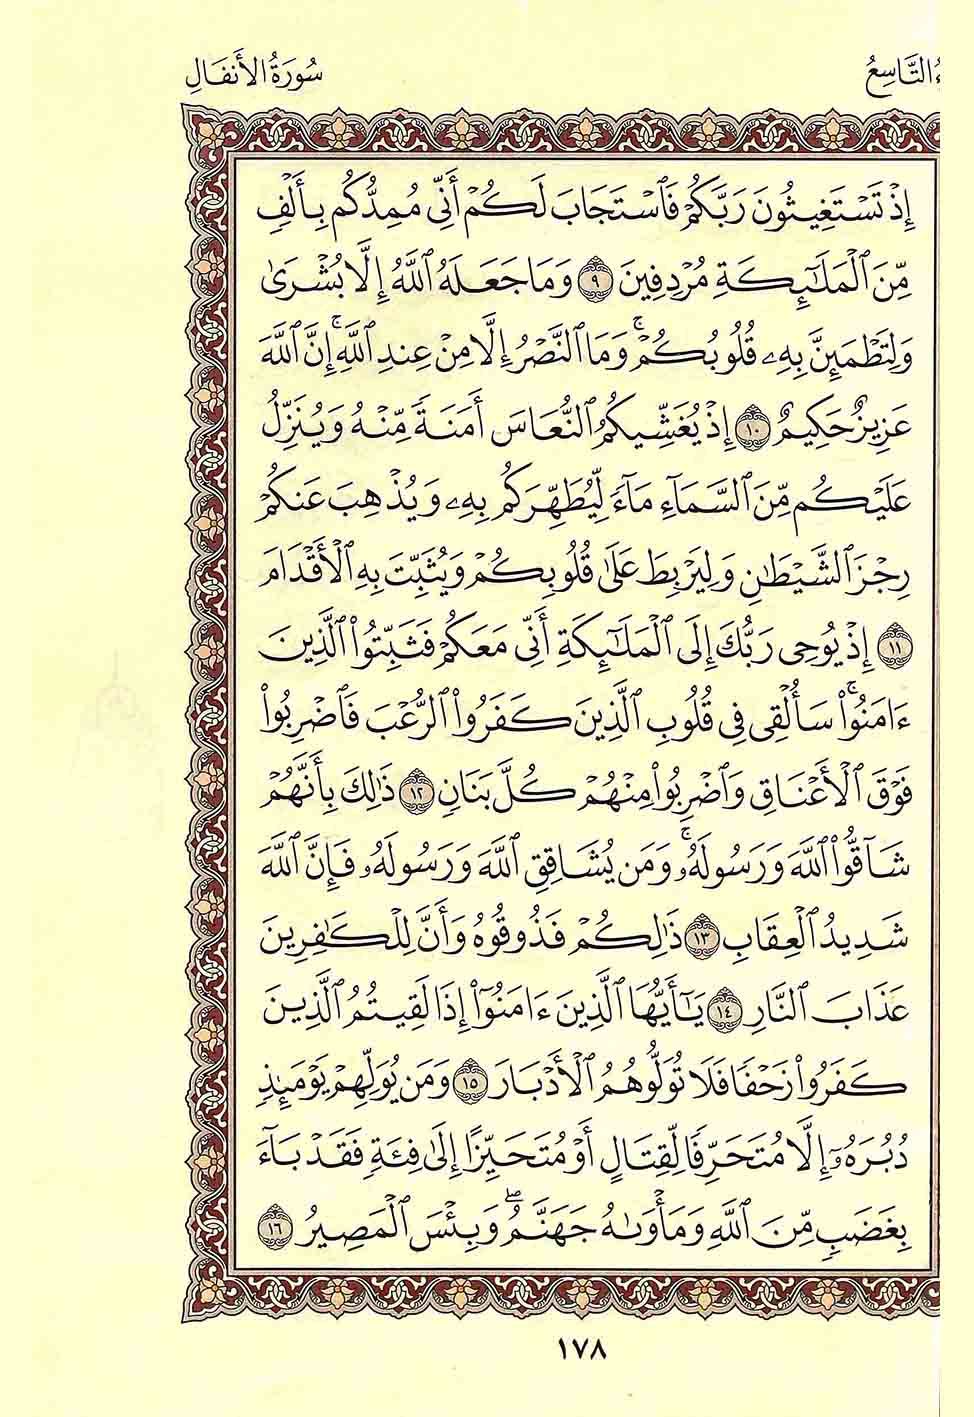 ءُ التَّاسِعُ
سُورَةُ الأَنفَالِ
إِذْ تَسْتَغِيثُونَ رَبَّكُمْ فَٱسْتَجَابَ لَكُمْ أَنِّى مُمِدُّكُم بِأَلْفٍ
مِّنَ ٱلْمَلَـٰٓئِكَةِ مُرْدِفِينَ ٩ وَمَا جَعَلَهُ ٱللَّهُ إِلَّا بُشْرَىٰ
وَلِتَطْمَئِنَّ بِهِۦ قُلُوبُكُمْ ۚ وَمَا ٱلنَّصْرُ إِلَّا مِنْ عِندِ ٱللَّهِ ۚ إِنَّ ٱللَّهَ
عَزِيزٌ حَكِيمٌ ١٠ إِذْ يُغَشِّيكُمُ ٱلنُّعَاسَ أَمَنَةً مِّنْهُ وَيُنَزِّلُ
عَلَيْكُم مِّنَ ٱلسَّمَآءِ مَآءً لِّيُطَهِّرَكُم بِهِۦ وَيُذْهِبَ عَنكُمْ
رِجْزَ ٱلشَّيْطَـٰنِ وَلِيَرْبِطَ عَلَىٰ قُلُوبِكُمْ وَيُثَبِّتَ بِهِ ٱلْأَقْدَامَ
١١ إِذْ يُوحِى رَبُّكَ إِلَى ٱلْمَلَـٰٓئِكَةِ أَنِّى مَعَكُمْ فَثَبِّتُوا۟ ٱلَّذِينَ
ءَامَنُوا۟ ۚ سَأُلْقِى فِى قُلُوبِ ٱلَّذِينَ كَفَرُوا۟ ٱلرُّعْبَ فَٱضْرِبُوا۟
فَوْقَ ٱلْأَعْنَاقِ وَٱضْرِبُوا۟ مِنْهُمْ كُلَّ بَنَانٍ ١٢ ذَٰلِكَ بِأَنَّهُمْ
شَآقُّوا۟ ٱللَّهَ وَرَسُولَهُۥ ۚ وَمَن يُشَاقِقِ ٱللَّهَ وَرَسُولَهُۥ فَإِنَّ ٱللَّهَ
شَدِيدُ ٱلْعِقَابِ ١٣ ذَٰلِكُمْ فَذُوقُوهُ وَأَنَّ لِلْكَـٰفِرِينَ
عَذَابَ ٱلنَّارِ ١٤ يَـٰٓأَيُّهَا ٱلَّذِينَ ءَامَنُوٓا۟ إِذَا لَقِيتُمُ ٱلَّذِينَ
كَفَرُوا۟ زَحْفًا فَلَا تُوَلُّوهُمُ ٱلْأَدْبَارَ ١٥ وَمَن يُوَلِّهِمْ يَوْمَئِذٍ
دُبُرَهُۥٓ إِلَّا مُتَحَرِّفًا لِّقِتَالٍ أَوْ مُتَحَيِّزًا إِلَىٰ فِئَةٍ فَقَدْ بَآءَ
بِغَضَبٍ مِّنَ ٱللَّهِ وَمَأْوَىٰهُ جَهَنَّمُ ۖ وَبِئْسَ ٱلْمَصِيرُ ١٦
١٧٨